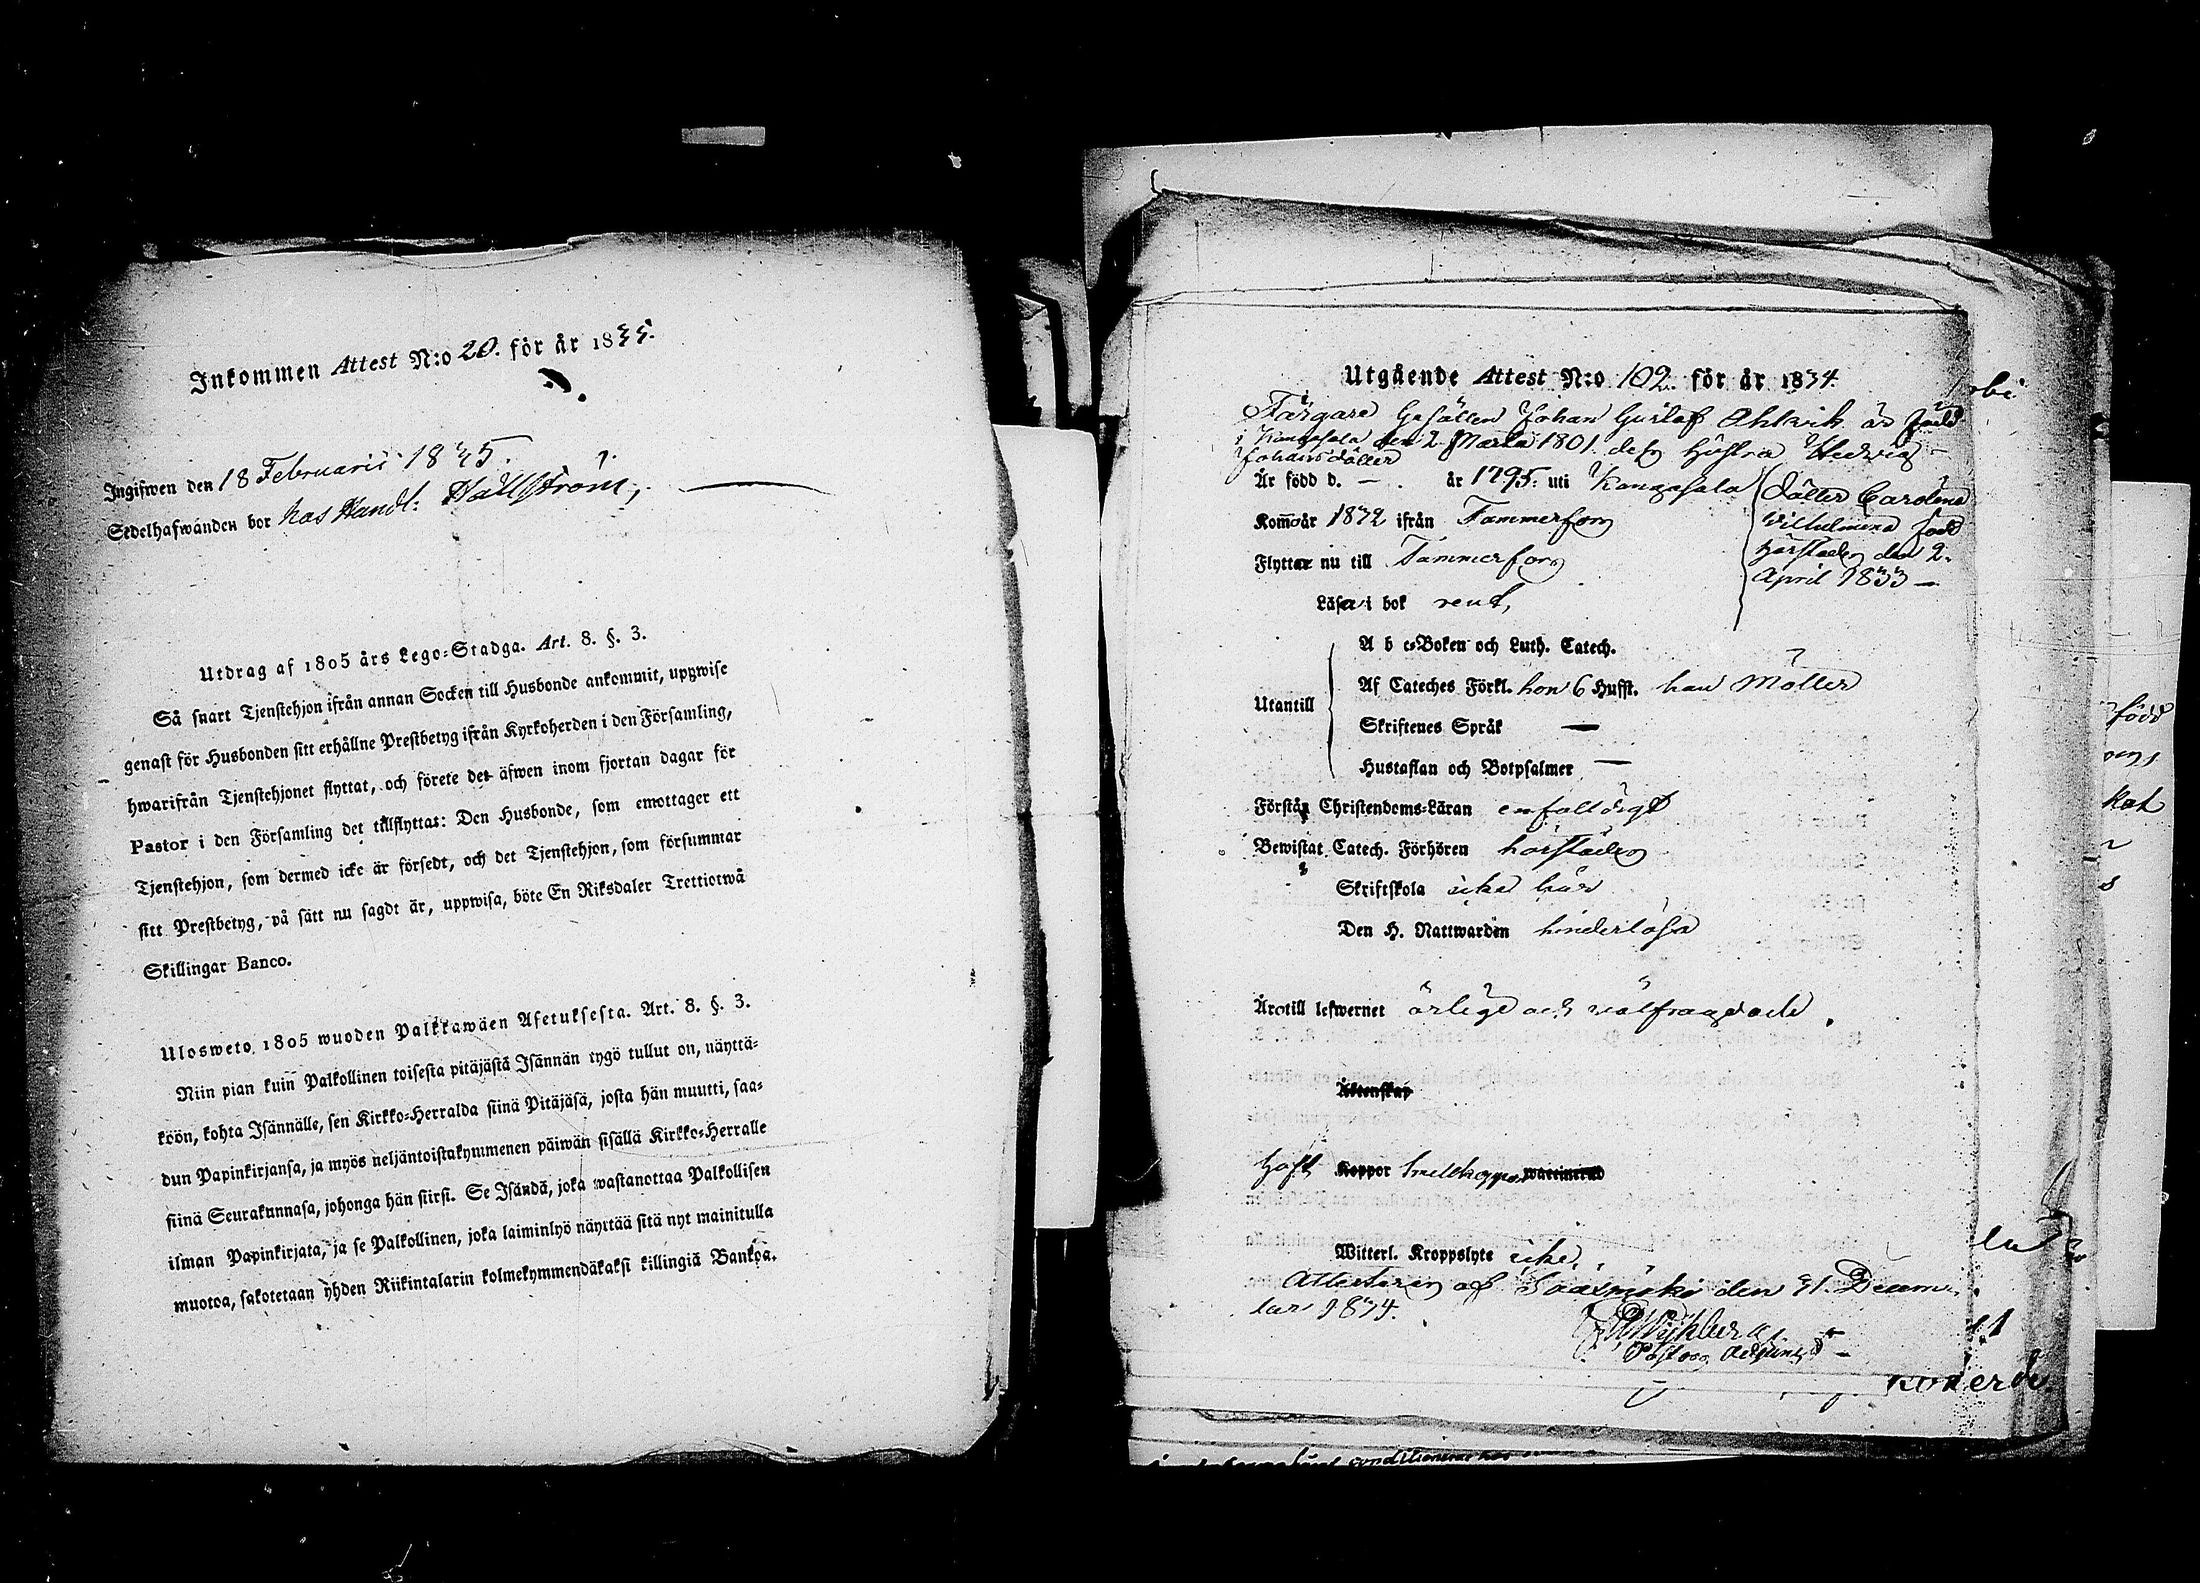 Inkommen Attest N:o 20. för år 1835.
Ingifwen den 18 Februarii 1835.
Sedelhafwanden bor hos Handl. Hallström,
Utdrag af 1805 års Lego-Stadga. Art. 8. §. 3.
Så snart Tjenstehjon ifrån annan Socken till Husbonde ankommit, uppwise
genast för Husbonden sitt erhållne Prestbetyg ifrån Kyrkoherden i den Församling,
hwarifrån Tjenstehjonet flyttat, och förete det äfwen inom fjortan dagar för
Pastor i den Församling det tillflyttat: Den Husbonde, som emottager ett
Tjenstehjon, som dermed icke är försedt, och det Tjenstehjon, som försummar
sitt Prestbetyg, på sätt nu sagdt är, uppwisa, böte En Riksdaler Trettiotwå
Skillingar Banco.
Ulosweto 1805 wuoden Palkkawäen Asetuksesta. Art. 8. §. 3.
Niin pian kuin Palkollinen toisesta pitäjästä Isännän tygö tullut on, näyttä-
köön, kohta Isännälle, sen Kirkko-Herralda siinä Pitäjäsä, josta hän muutti, saa-
dun Papinkirjansa, ja myös neljäntoistakymmenen päiwän sisällä Kirkko-Herralle
siinä Seurakunnasa, johonga hän siirsi. Se Isändä, joka wastanottaa Palkollisen
ilman Papinkirjata, ja se Palkollinen, joka laiminlyö näyttää sitä nyt mainitulla
muotoa, sakotetaan yhden Riikintalarin kolmekymmendäkaksi killingiä Bankoa.
Utgående Attest N:o 102. för år 1834.
Färgare Gesällen Johan Gustaf Ahlvik är född
i Kangasala den 2 Martii 1801. dess Hustru Hedvig
Johansdotter
Är född d. — . år 1795. uti Kangasala
Dotter Carolina
Wilhelmina född
härstädes den 2.
April 1833 —
Kom år 1832 ifrån Tammerfors
Flyttar nu till Tammerfors
Läser i bok rent,
Utantill
A b c-Boken och Luth. Catech.
Af Cateches Förkl. hon 6 Hufst. han Möller
Skriftenes Språk —
Hustaflan och Botpsalmer —
Förstår Christendoms-Läran enfaldigt
Bewistat Catech. Förhören härstädes
Skriftskola icke här
Den H. Nattwarden hinderlösa
Äro till lefwernet ärlige och välfrägdade.
Äktenskap
Haft Koppor Smittkoppor waccinerad
Witterl. Kroppslyte icke.
Attesteras af Sääxmäki den 31. Decem-
ber 1834.
Pastors Adjunct